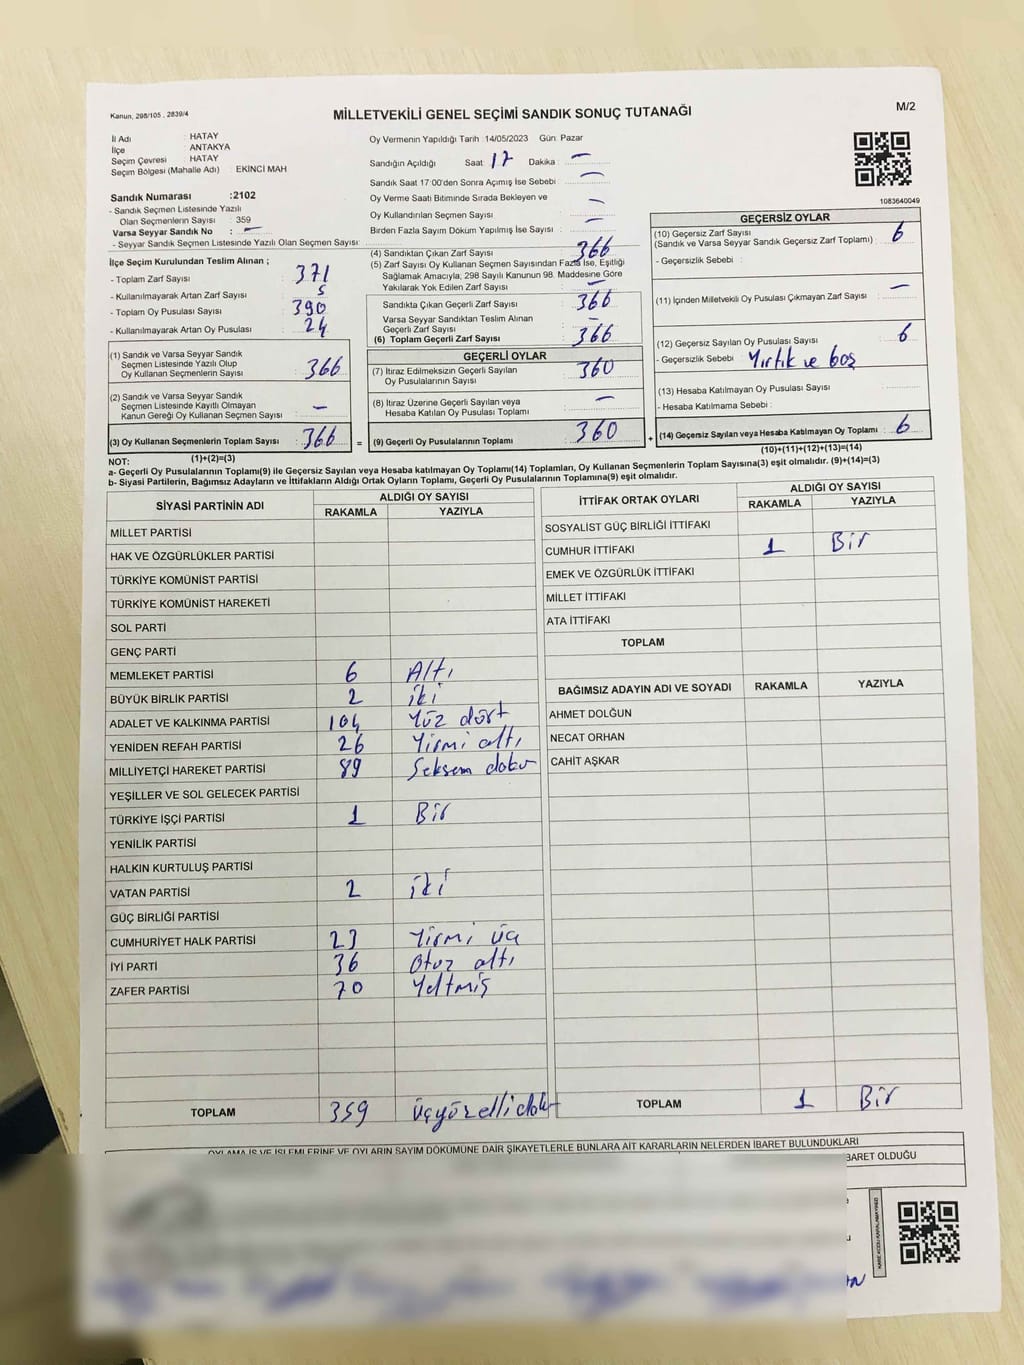 Kanun, 298/105 , 2839/4
MİLLETVEKİLİ GENEL SEÇİMİ SANDIK SONUÇ TUTANAĞI
M/2
İl Adı : HATAY
İlçe : ANTAKYA
Seçim Çevresi : HATAY
Seçim Bölgesi (Mahalle Adı) : EKİNCİ MAH
Sandık Numarası :2102
- Sandık Seçmen Listesinde Yazılı
Olan Seçmenlerin Sayısı : 359
Varsa Seyyar Sandık No : —
- Seyyar Sandık Seçmen Listesinde Yazılı Olan Seçmen Sayısı:
İlçe Seçim Kurulundan Teslim Alınan ;
- Toplam Zarf Sayısı : 371
- Kullanılmayarak Artan Zarf Sayısı : 5
- Toplam Oy Pusulası Sayısı : 390
- Kullanılmayarak Artan Oy Pusulası : 24
(1) Sandık ve Varsa Seyyar Sandık
Seçmen Listesinde Yazılı Olup
Oy Kullanan Seçmenlerin Sayısı : 366
(2) Sandık ve Varsa Seyyar Sandık
Seçmen Listesinde Kayıtlı Olmayan
Kanun Gereği Oy Kullanan Seçmen Sayısı : —
(3) Oy Kullanan Seçmenlerin Toplam Sayısı : 366
(1)+(2)=(3)
Oy Vermenin Yapıldığı Tarih 14/05/2023 Gün: Pazar
Sandığın Açıldığı Saat 17 Dakika : —
Sandık Saat 17:00'den Sonra Açımış İse Sebebi : —
Oy Verme Saati Bitiminde Sırada Bekleyen ve
Oy Kullandırılan Seçmen Sayısı : —
Birden Fazla Sayım Döküm Yapılmış İse Sayısı : —
(4) Sandıktan Çıkan Zarf Sayısı : 366
(5) Zarf Sayısı Oy Kullanan Seçmen Sayısından Fazla İse, Eşitliği
Sağlamak Amacıyla, 298 Sayılı Kanunun 98. Maddesine Göre
Yakılarak Yok Edilen Zarf Sayısı : —
Sandıkta Çıkan Geçerli Zarf Sayısı : 366
Varsa Seyyar Sandıktan Teslim Alınan
Geçerli Zarf Sayısı : —
(6) Toplam Geçerli Zarf Sayısı : 366
GEÇERLİ OYLAR
(7) İtiraz Edilmeksizin Geçerli Sayılan
Oy Pusulalarının Sayısı : 360
(8) İtiraz Üzerine Geçerli Sayılan veya
Hesaba Katılan Oy Pusulası Toplamı : —
= (9) Geçerli Oy Pusulalarının Toplamı : 360
1083640049
GEÇERSİZ OYLAR
(10) Geçersiz Zarf Sayısı
(Sandık ve Varsa Seyyar Sandık Geçersiz Zarf Toplamı) : 6
- Geçersizlik Sebebi :
(11) İçinden Milletvekili Oy Pusulası Çıkmayan Zarf Sayısı : —
(12) Geçersiz Sayılan Oy Pusulası Sayısı : 6
- Geçersizlik Sebebi : Yırtık ve boş
(13) Hesaba Katılmayan Oy Pusulası Sayısı :
- Hesaba Katılmama Sebebi :
+ (14) Geçersiz Sayılan veya Hesaba Katılmayan Oy Toplamı : 6
(10)+(11)+(12)+(13)=(14)
NOT:
a- Geçerli Oy Pusulalarının Toplamı(9) ile Geçersiz Sayılan veya Hesaba katılmayan Oy Toplamı(14) Toplamları, Oy Kullanan Seçmenlerin Toplam Sayısına(3) eşit olmalıdır. (9)+(14)=(3)
b- Siyasi Partilerin, Bağımsız Adayların ve İttifakların Aldığı Ortak Oyların Toplamı, Geçerli Oy Pusulalarının Toplamına(9) eşit olmalıdır.
SİYASİ PARTİNİN ADI
ALDIĞI OY SAYISI
RAKAMLA YAZIYLA
MİLLET PARTİSİ
HAK VE ÖZGÜRLÜKLER PARTİSİ
TÜRKİYE KOMÜNİST PARTİSİ
TÜRKİYE KOMÜNİST HAREKETİ
SOL PARTİ
GENÇ PARTİ
MEMLEKET PARTİSİ 6 Altı
BÜYÜK BİRLİK PARTİSİ 2 iki
ADALET VE KALKINMA PARTİSİ 104 Yüz dört
YENİDEN REFAH PARTİSİ 26 Yirmi altı
MİLLİYETÇİ HAREKET PARTİSİ 89 Seksem dokuz
YEŞİLLER VE SOL GELECEK PARTİSİ
TÜRKİYE İŞÇİ PARTİSİ 1 Bir
YENİLİK PARTİSİ
HALKIN KURTULUŞ PARTİSİ
VATAN PARTİSİ 2 iki
GÜÇ BİRLİĞİ PARTİSİ
CUMHURİYET HALK PARTİSİ 23 Yirmi üç
İYİ PARTİ 36 Otuz altı
ZAFER PARTİSİ 70 Yetmiş
TOPLAM 359 üçyüzellidokuz
İTTİFAK ORTAK OYLARI
ALDIĞI OY SAYISI
RAKAMLA YAZIYLA
SOSYALİST GÜÇ BİRLİĞİ İTTİFAKI
CUMHUR İTTİFAKI 1 Bir
EMEK VE ÖZGÜRLÜK İTTİFAKI
MİLLET İTTİFAKI
ATA İTTİFAKI
TOPLAM
BAĞIMSIZ ADAYIN ADI VE SOYADI RAKAMLA YAZIYLA
AHMET DOLĞUN
NECAT ORHAN
CAHİT AŞKAR
TOPLAM 1 Bir
OYLAMA İŞ VE İŞLEMLERİNE VE OYLARIN SAYIM DÖKÜMÜNE DAİR ŞİKAYETLERLE BUNLARA AİT KARARLARIN NELERDEN İBARET BULUNDUKLARI
BARET OLDUĞU